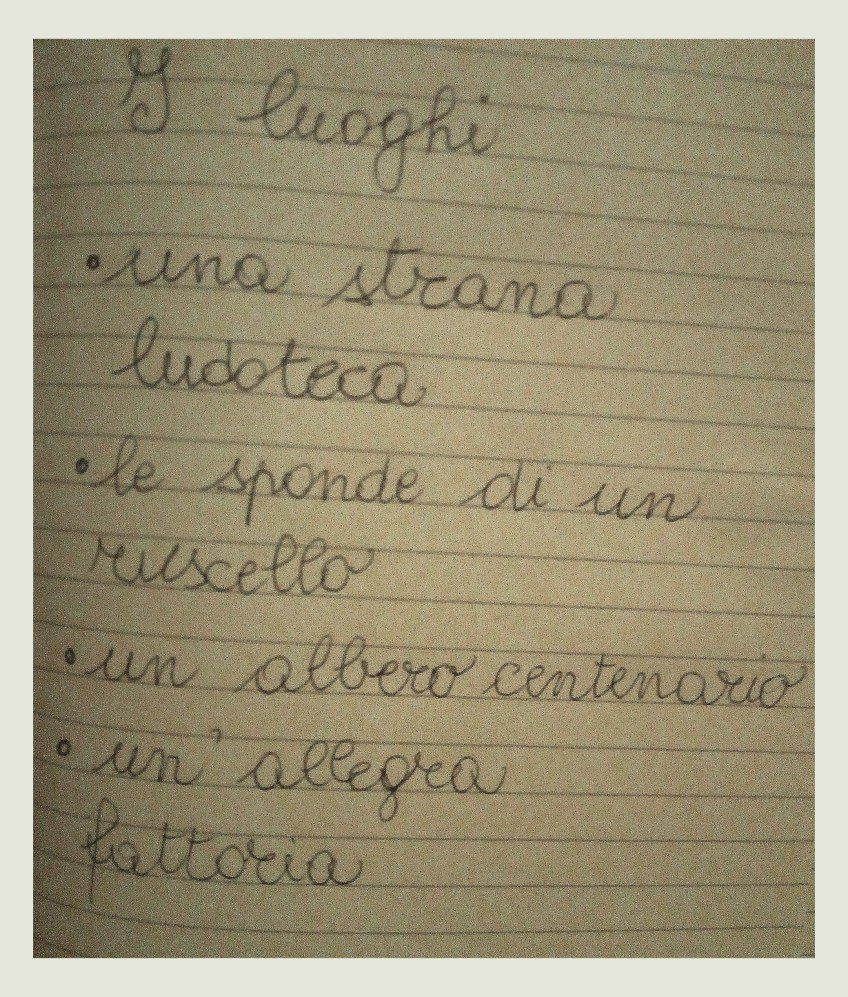 I luoghi
• una strana
ludoteca
• le sponde di un
ruscello
• un albero centenario
• un' allegra
fattoria